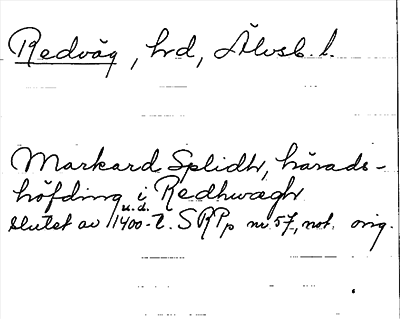 Redväg, hrd, Älvsb. l.
Markard Splidh, härads-
höfding i Redhwægh
u.d.
slutet av 1400-t. SRPp nr 57, not. orig.